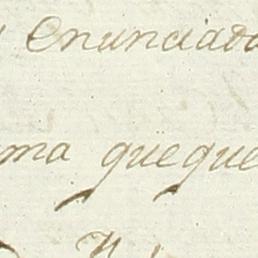 enunciado
ma que que